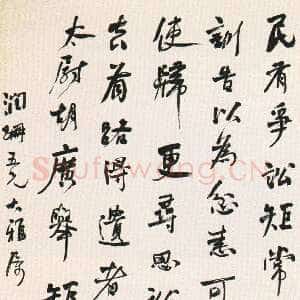 民有爭訟矩常
訓告以為忿恚可
使歸更尋思訟
去有路得遺者
太尉胡廣舉矩
潤珊五兄大雅屬
Shufawang.CN